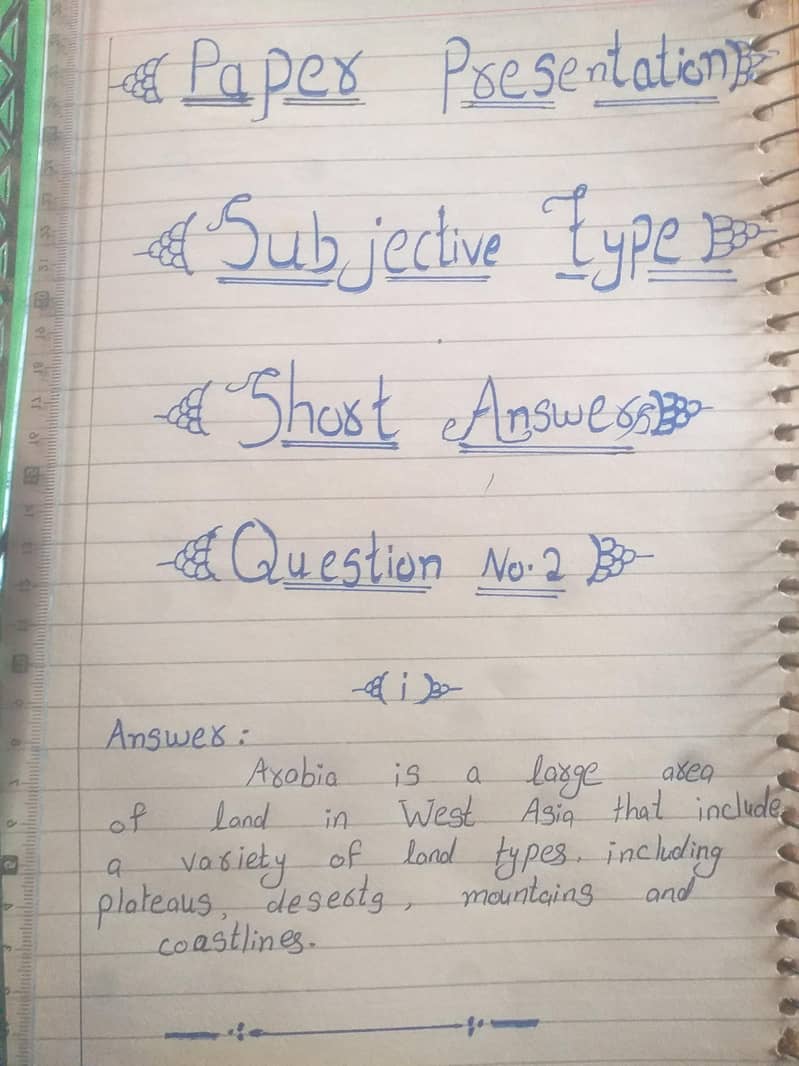 Paper Presentation
Subjective Type
Short Answers
Question No. 2
i
Answer:
Arabia is a large area
of land in West Asia that include
a variety of land types, including
plateaus, deserts, mountains and
coastlines.